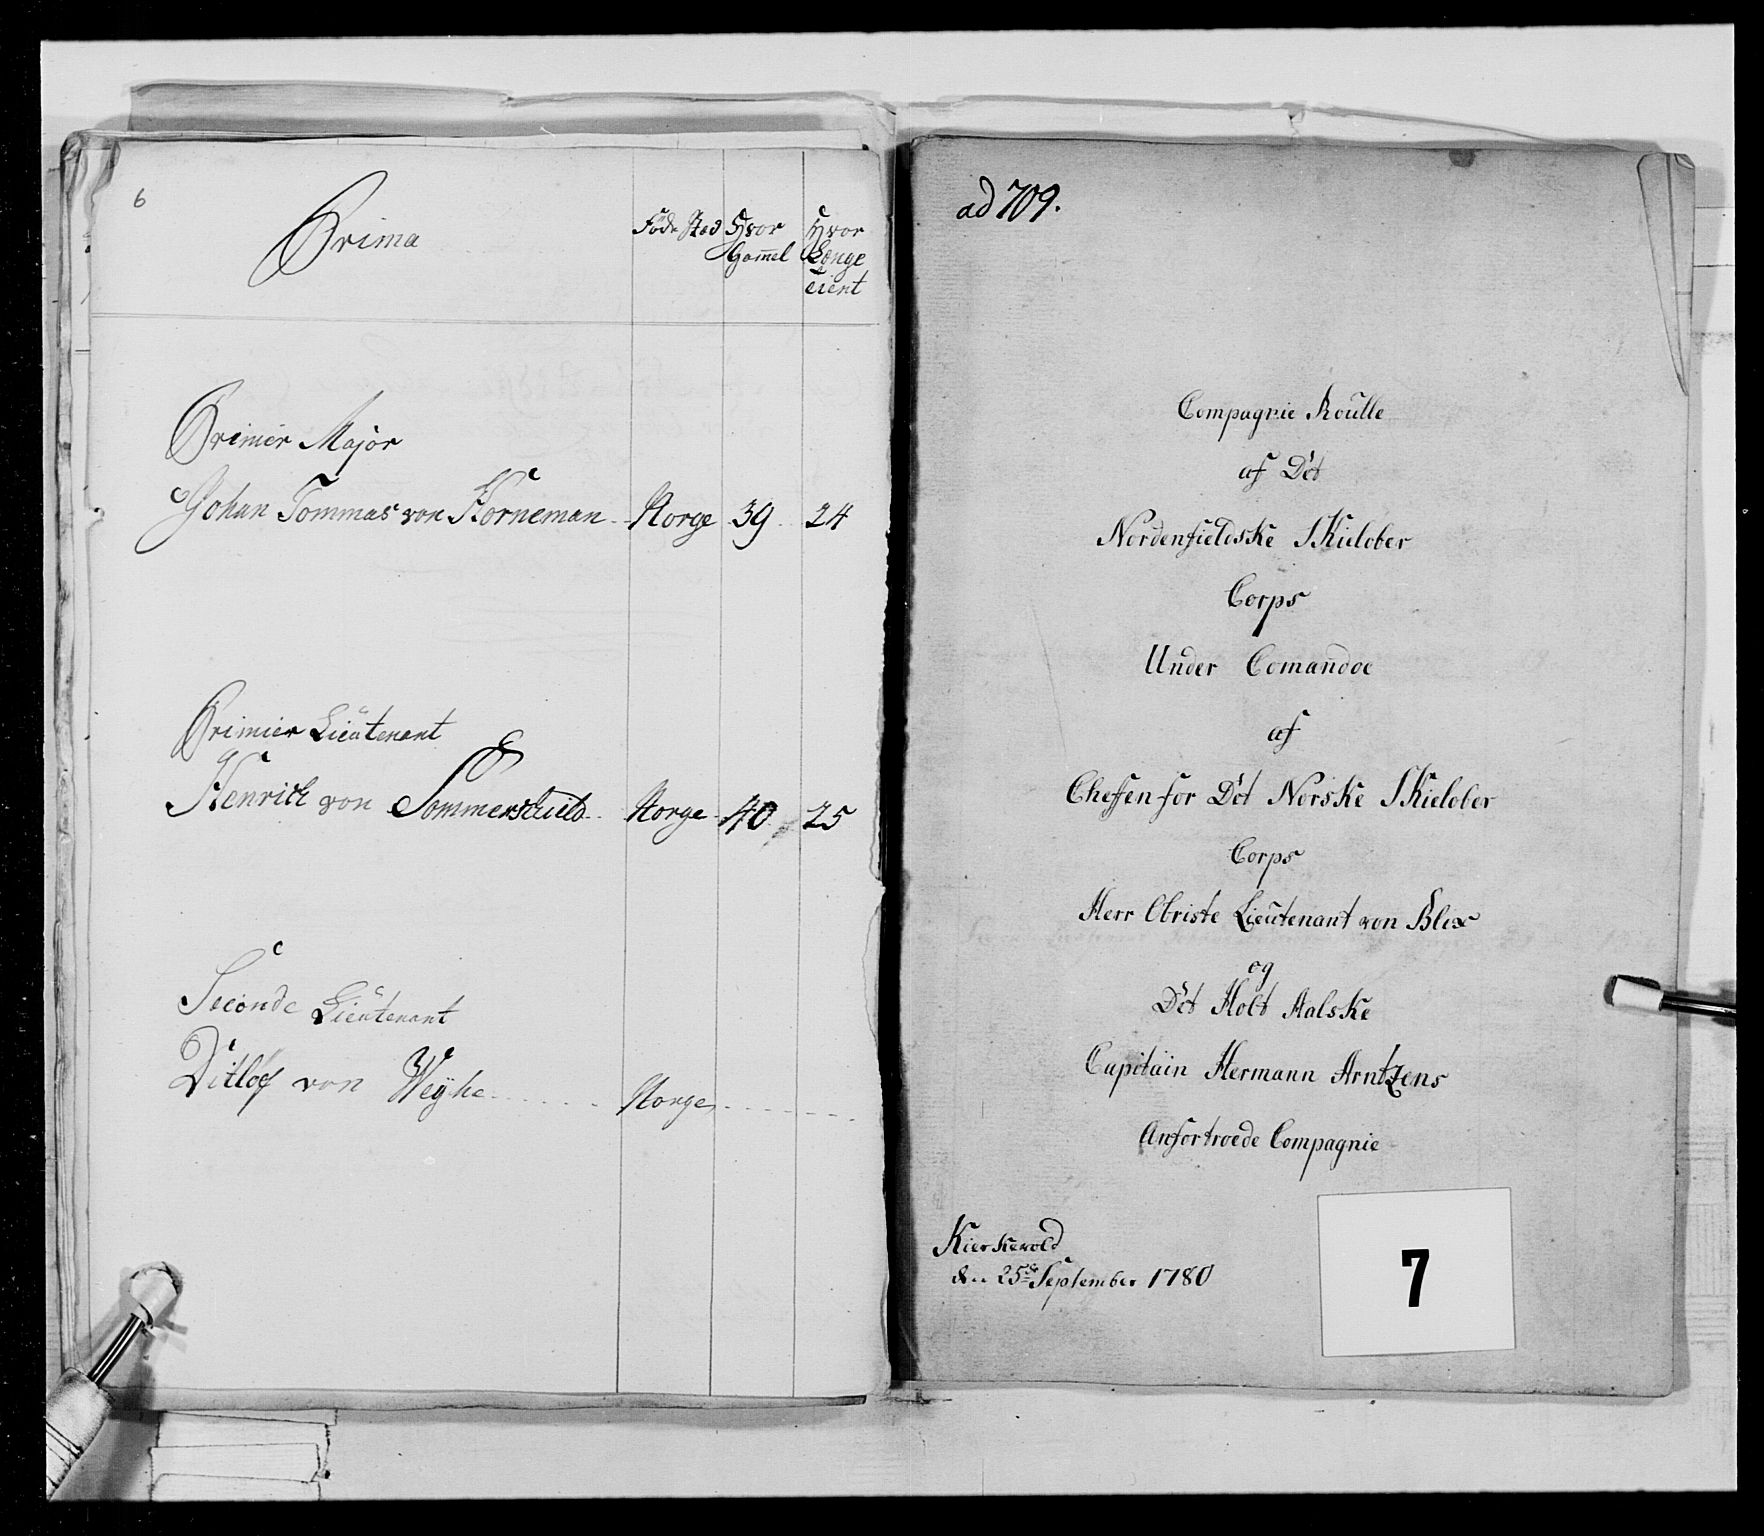 6
Prima
Föde Sted
Hvor
Gam̄el
Hvor
Længe
tient
Primier Major
Johan Tommas von Horneman Norge 39 24
Primier Lieutenant
Henrich von Sommerschield Norge 40 25
Seconde Lieutenant
Ditlef von Weÿhe Norge
ad 709.
Compagnie Roulle
af Det
Nordenfieldske Skielober
Corps
Under Comandoe
af
Cheffen for Det Norske Skielober
Corps
Herr Obriste Lieutenant von Blix
og
Det Holt Aalske
Capitain Hermann Arntzens
Anfortroede Compagnie
Kierkevold
den 25de September 1780
7